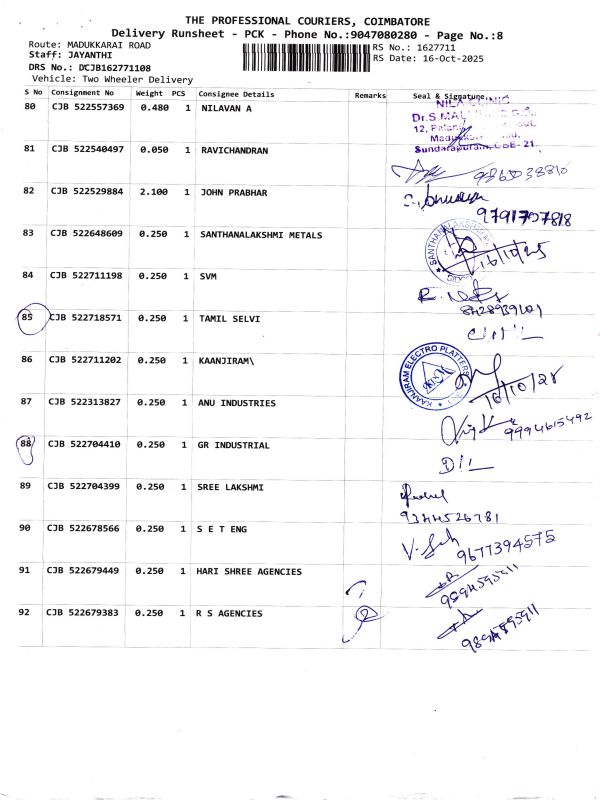 THE PROFESSIONAL COURIERS, COIMBATORE
Delivery Runsheet - PCK - Phone No.:9047080280 - Page No.:8
Route: MADUKKARAI ROAD
RS No.: 1627711
Staff: JAYANTHI
RS Date: 16-Oct-2025
DRS No.: DCJB162771108
Vehicle: Two Wheeler Delivery
S No Consignment No Weight PCS Consignee Details Remarks Seal & Signature
80 CJB 522557369 0.480 1 NILAVAN A
NILA CLINIC
Dr.S.
12,
Sundarapuram, CBE-21
81 CJB 522540497 0.050 1 RAVICHANDRAN
82 CJB 522529884 2.100 1 JOHN PRABHAR
9791707818
83 CJB 522648609 0.250 1 SANTHANALAKSHMI METALS
16/10/25
84 CJB 522711198 0.250 1 SVM
8428939101
85 CJB 522718571 0.250 1 TAMIL SELVI
86 CJB 522711202 0.250 1 KAANJIRAM\
KAANJIRAM ELECTRO PLATTERS
87 CJB 522313827 0.250 1 ANU INDUSTRIES
9994615492
88 CJB 522704410 0.250 1 GR INDUSTRIAL
D/L
89 CJB 522704399 0.250 1 SREE LAKSHMI
9344526781
90 CJB 522678566 0.250 1 S E T ENG
9677394575
91 CJB 522679449 0.250 1 HARI SHREE AGENCIES
9894595911
92 CJB 522679383 0.250 1 R S AGENCIES
9894595911